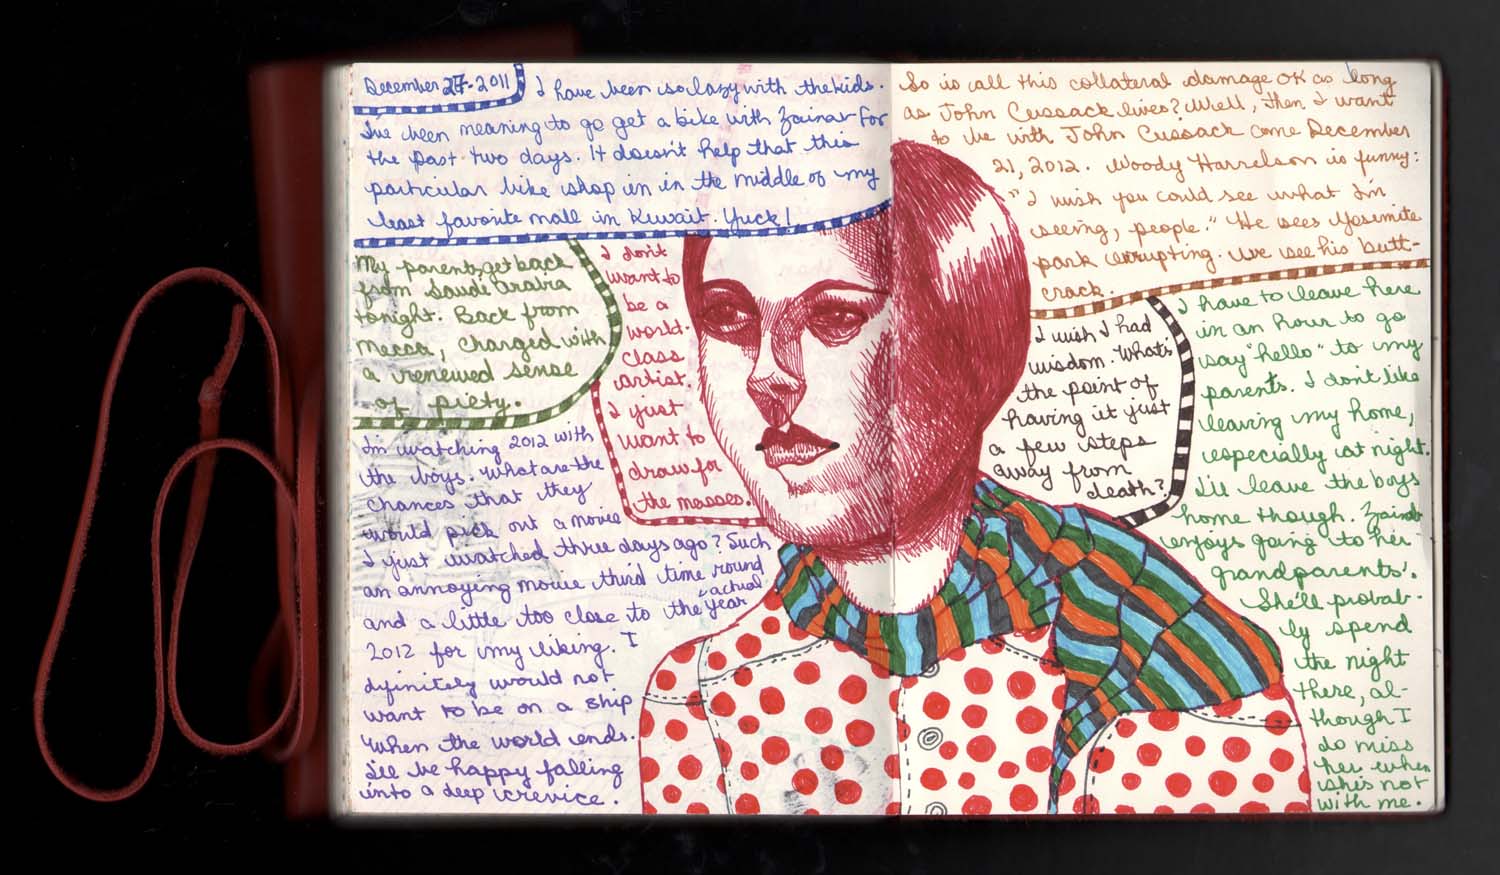 December 27-2011
I have been so lazy with the kids.
I've been meaning to go get a bike with Zainab for
the past two days. It doesn't help that this
particular bike shop in in the middle of my
least favorite mall in Kuwait. Yuck!
My parents get back
from Saudi Arabia
tonight. Back from
Mecca, charged with
a renewed sense
of piety.
I don't
want to
be a
world-
class
artist.
I just
want to
draw for
the masses.
I'm watching 2012 with
the boys. What are the
chances that they
would pick out a movie
I just watched three days ago? Such
an annoying movie third time round
and a little too close to the actual year
2012 for my liking. I
definitely would not
want to be on a ship
when the world ends.
I'll be happy falling
into a deep crevice.
So is all this collateral damage OK as long
as John Cussack lives? Well, then I want
to be with John Cussack come December
21, 2012. Woody Harrelson is funny:
"I wish you could see what I'm
seeing, people." He sees Yosemite
park errupting. We see his butt-
crack.
I wish I had
wisdom. What's
the point of
having it just
a few steps
away from
death?
I have to leave here
in an hour to go
say "hello" to my
parents. I don't like
leaving my home,
especially at night.
I'll leave the boys
home though. Zainab
enjoys going to her
grandparents'.
She'll probab-
ly spend
the night
there, al-
though I
do miss
her when
she's not
with me.